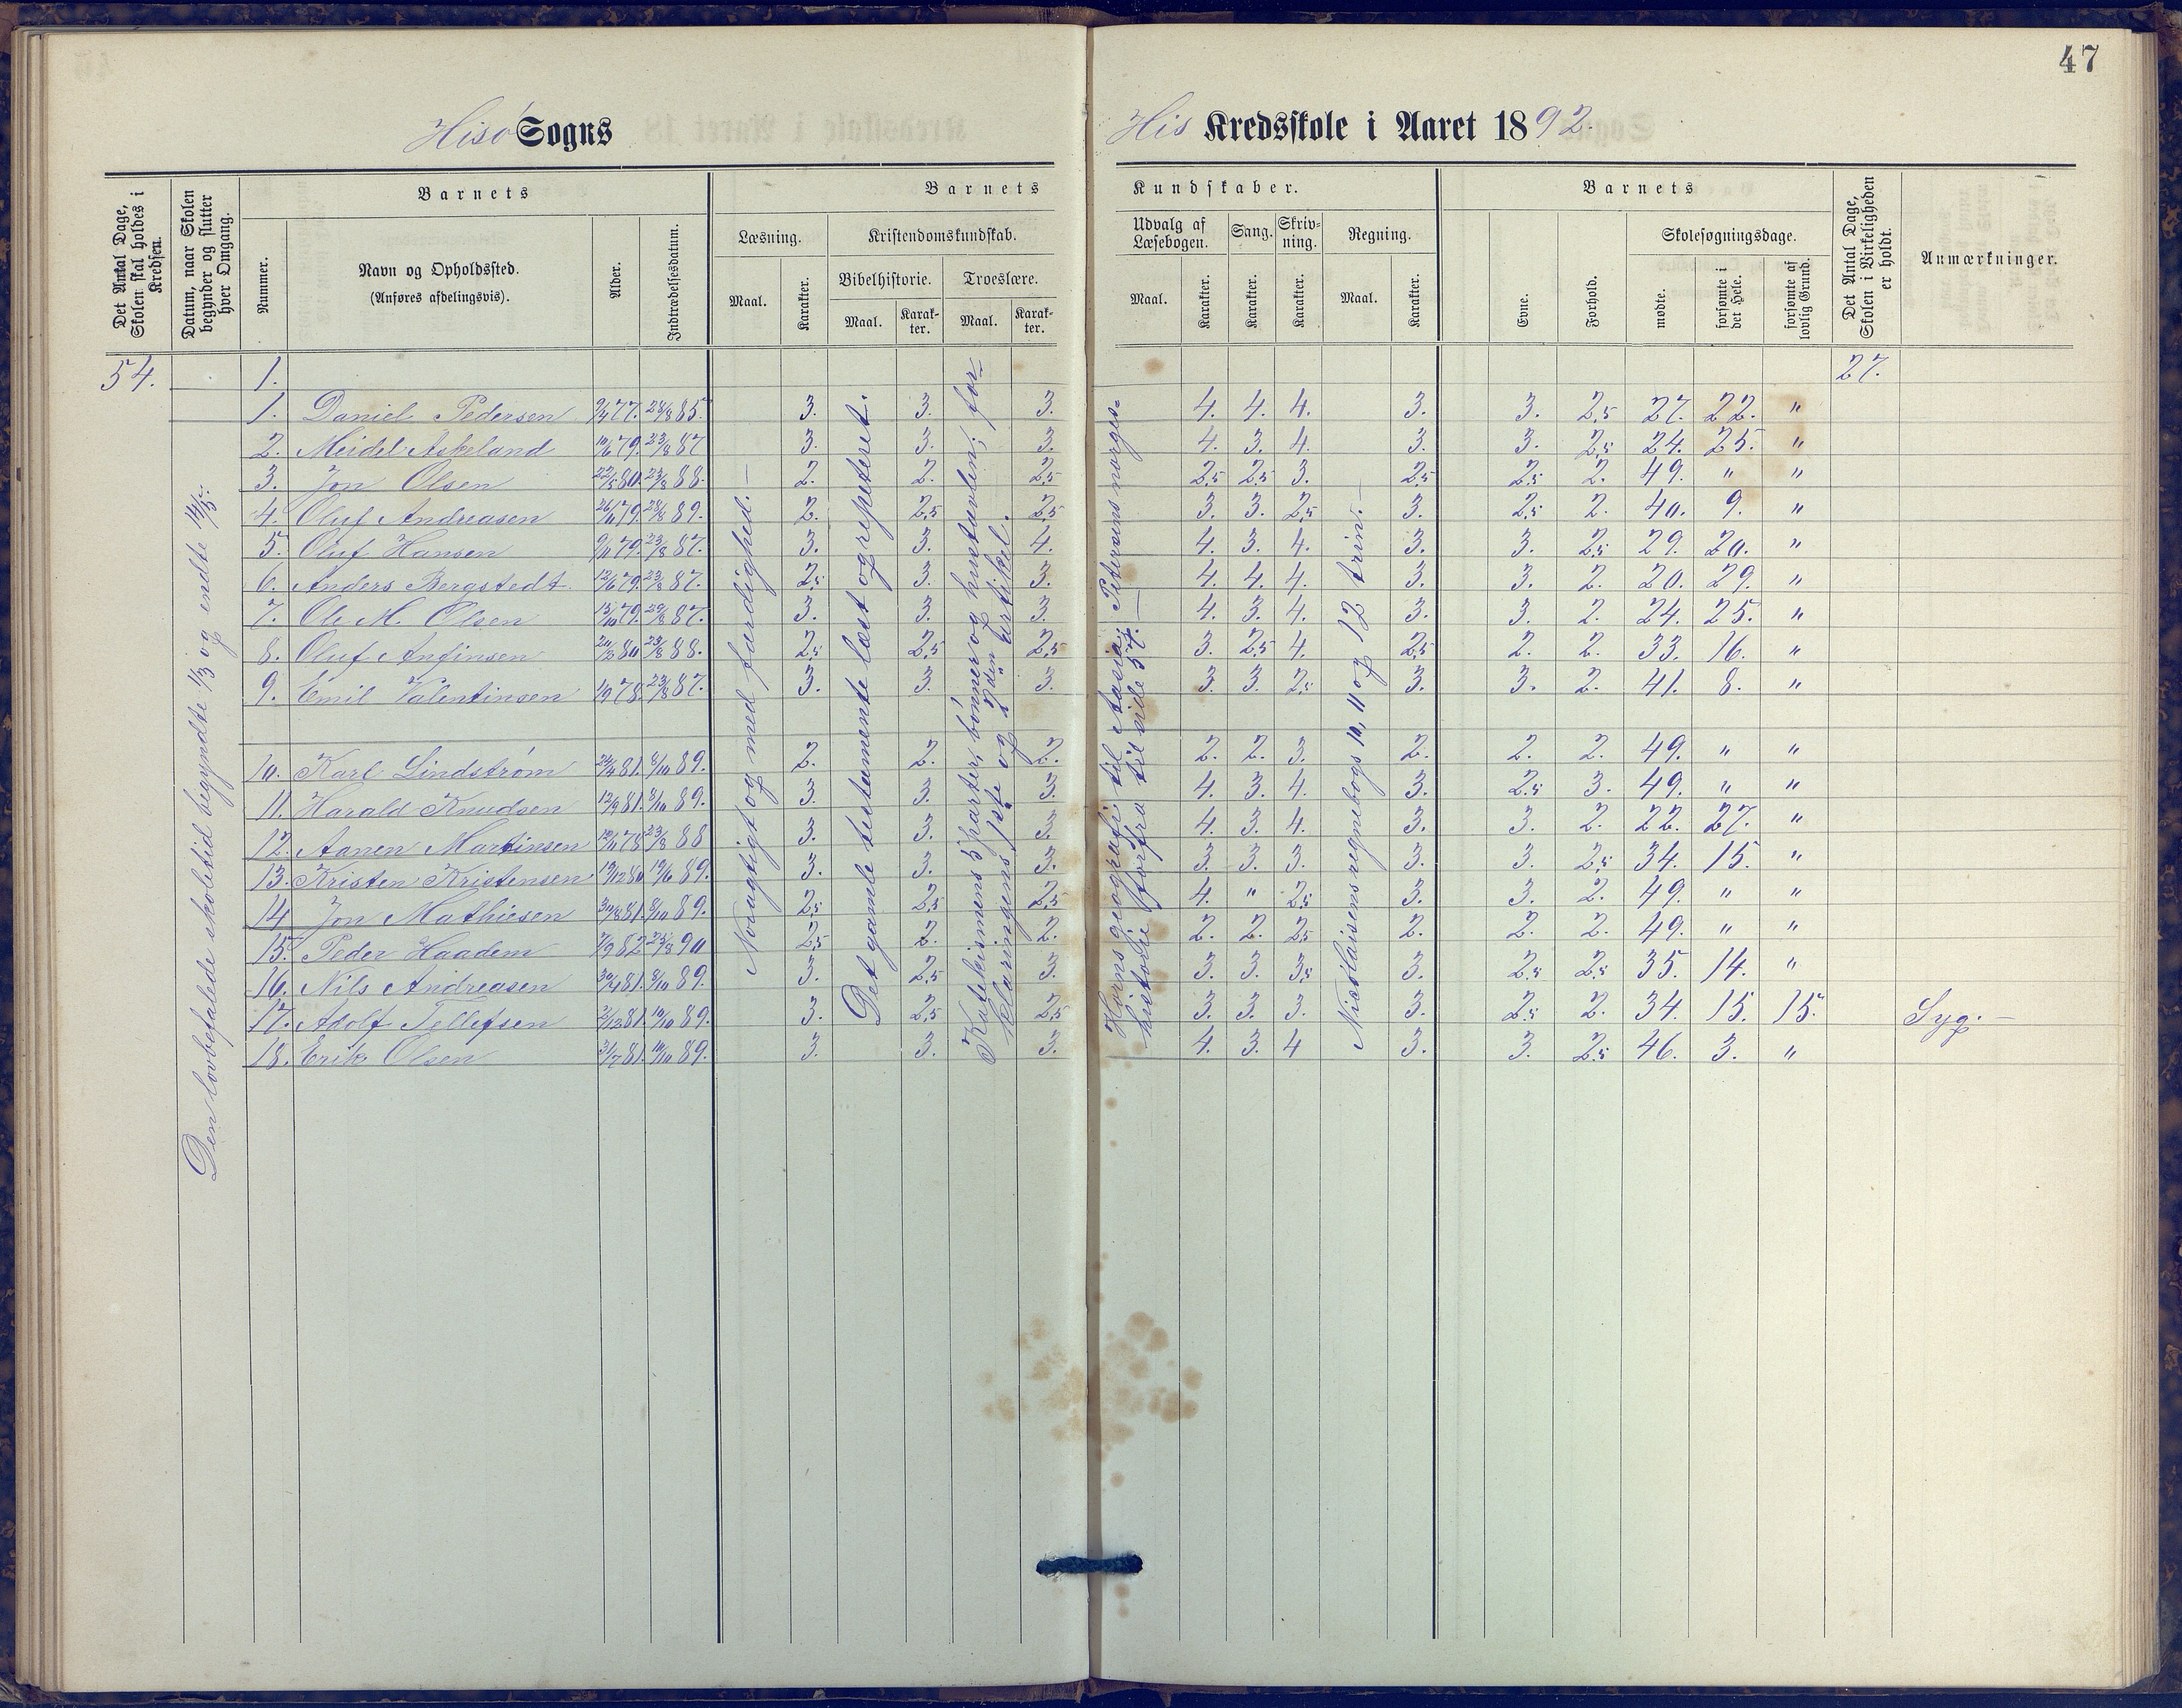 47
Hisö Sogns His Kredsskole i Aaret 1892.
Det Antal Dage, Skolen skal holdes i Kredsen.
Datum, naar Skolen begynder og slutter hver Omgang.
Barnets
Nummer.
Navn og Opholdssted.
(Anføres afdelingsvis).
Alder.
Indtrædelsesdatum.
Barnets Kundskaber.
Læsning.
Maal. Karakter.
Kristendomskundskab.
Bibelhistorie. Troeslære.
Maal. Karakter. Maal. Karakter.
Udvalg af Læsebogen.
Maal. Karakter.
Sang. Karakter.
Skrivning. Karakter.
Regning.
Maal. Karakter.
Barnets
Evne. Forhold.
Skolesøgningsdage.
mødte. forsømte i det Hele. forsømte af lovlig Grund.
Det Antal Dage, Skolen i Virkeligheden er holdt.
Anmærkninger.
54. 1. 27.
Den lovbefalede skoletid begyndte 1/3 og endte 14/5.
Nöiagtigt og med færdighed. —
Det gamle testamente læst og repeteret.
Katekismens 5 parter, bönner og hustavlen; forklaringens 1ste og 2den artikel.
Horns geografi til Asia; Petersens norgeshistorie forfra til side 57. —
Nicolaisens regnebogs 10, 11 og 12 trin. —
1. Daniel Pedersen 9/4 77. 28/8 85. 3. 3. 3. 4. 4. 4. 3. 3. 2,5 27. 22. "
2. Meidel Askeland 10/6 79. 23/8 87 3. 3. 3. 4. 3. 4. 3. 3. 2,5 24. 25. "
3. Jon Olsen 22/5 80. 23/8 88. 2. 2. 2,5 2,5 2,5 3. 2,5 2,5 2. 49. " "
4. Oluf Andreasen 26/11 79. 28/8 89. 2. 2,5 2,5 3. 3. 2,5 3. 2,5 2. 40. 9. "
5. Oluf Hansen 9/11 79. 23/8 87. 3. 3. 4. 4. 3. 4. 3. 3. 2,5 29. 20. "
6. Anders Bergstedt 12/6 79. 23/8 87. 2,5 3. 3. 4. 4. 4. 3. 3. 2. 20. 29. "
7. Ole M. Olsen 15/10 79. 23/8 87. 3. 3. 3. 4. 3. 4. 3. 3. 2. 24. 25. "
8. Oluf Anfinsen 20/3 80 23/8 88. 2,5 2,5 2,5 3. 2,5 4. 2,5 2. 2. 33. 16. "
9. Emil Valentinsen 1/9 78. 23/8 87. 3. 3. 3. 3. 3. 2,5 3. 3. 2. 41. 8. "
10. Karl Lindstrøm 24/4 81. 8/10 89. 2. 2. 2. 2. 2. 3. 2. 2. 2. 49. " "
11. Harald Knudsen 12/9 81. 8/10 89. 3. 3. 3. 4. 3. 4. 3. 2,5 3. 49. " "
12. Aanen Martinsen 10/11 78 23/8 88 3. 3. 3. 4. 3. 4. 3. 3. 2. 22. 27. "
13. Kristen Kristensen 19/12 80 19/6 89. 3. 3. 3. 3. 3. 3. 3. 3. 2,5 34. 15. "
14 Jon Mathiesen 30/8 81. 8/10 89. 2,5 2,5 2,5 4. " 2,5 3. 3. 2. 49. " "
15. Peder Haadem 7/9 82 25/8 90 2,5 2. 2. 2. 2. 2,5 2. 2. 2. 49. " "
16. Nils Andreasen 30/4 81. 8/10 89. 3. 2,5 3. 3. 3. 3,5 3. 2,5 2,5 35. 14. "
17. Adolf Tellefsen 2/12 81. 10/10 89. 3. 2,5 2,5 3. 3. 3. 3. 2,5 2. 34. 15. 15. Syg. —
18. Erik Olsen 31/7 81. 10/10 89. 3. 3. 3. 4. 3. 4 3. 3. 2,5 46. 3. "